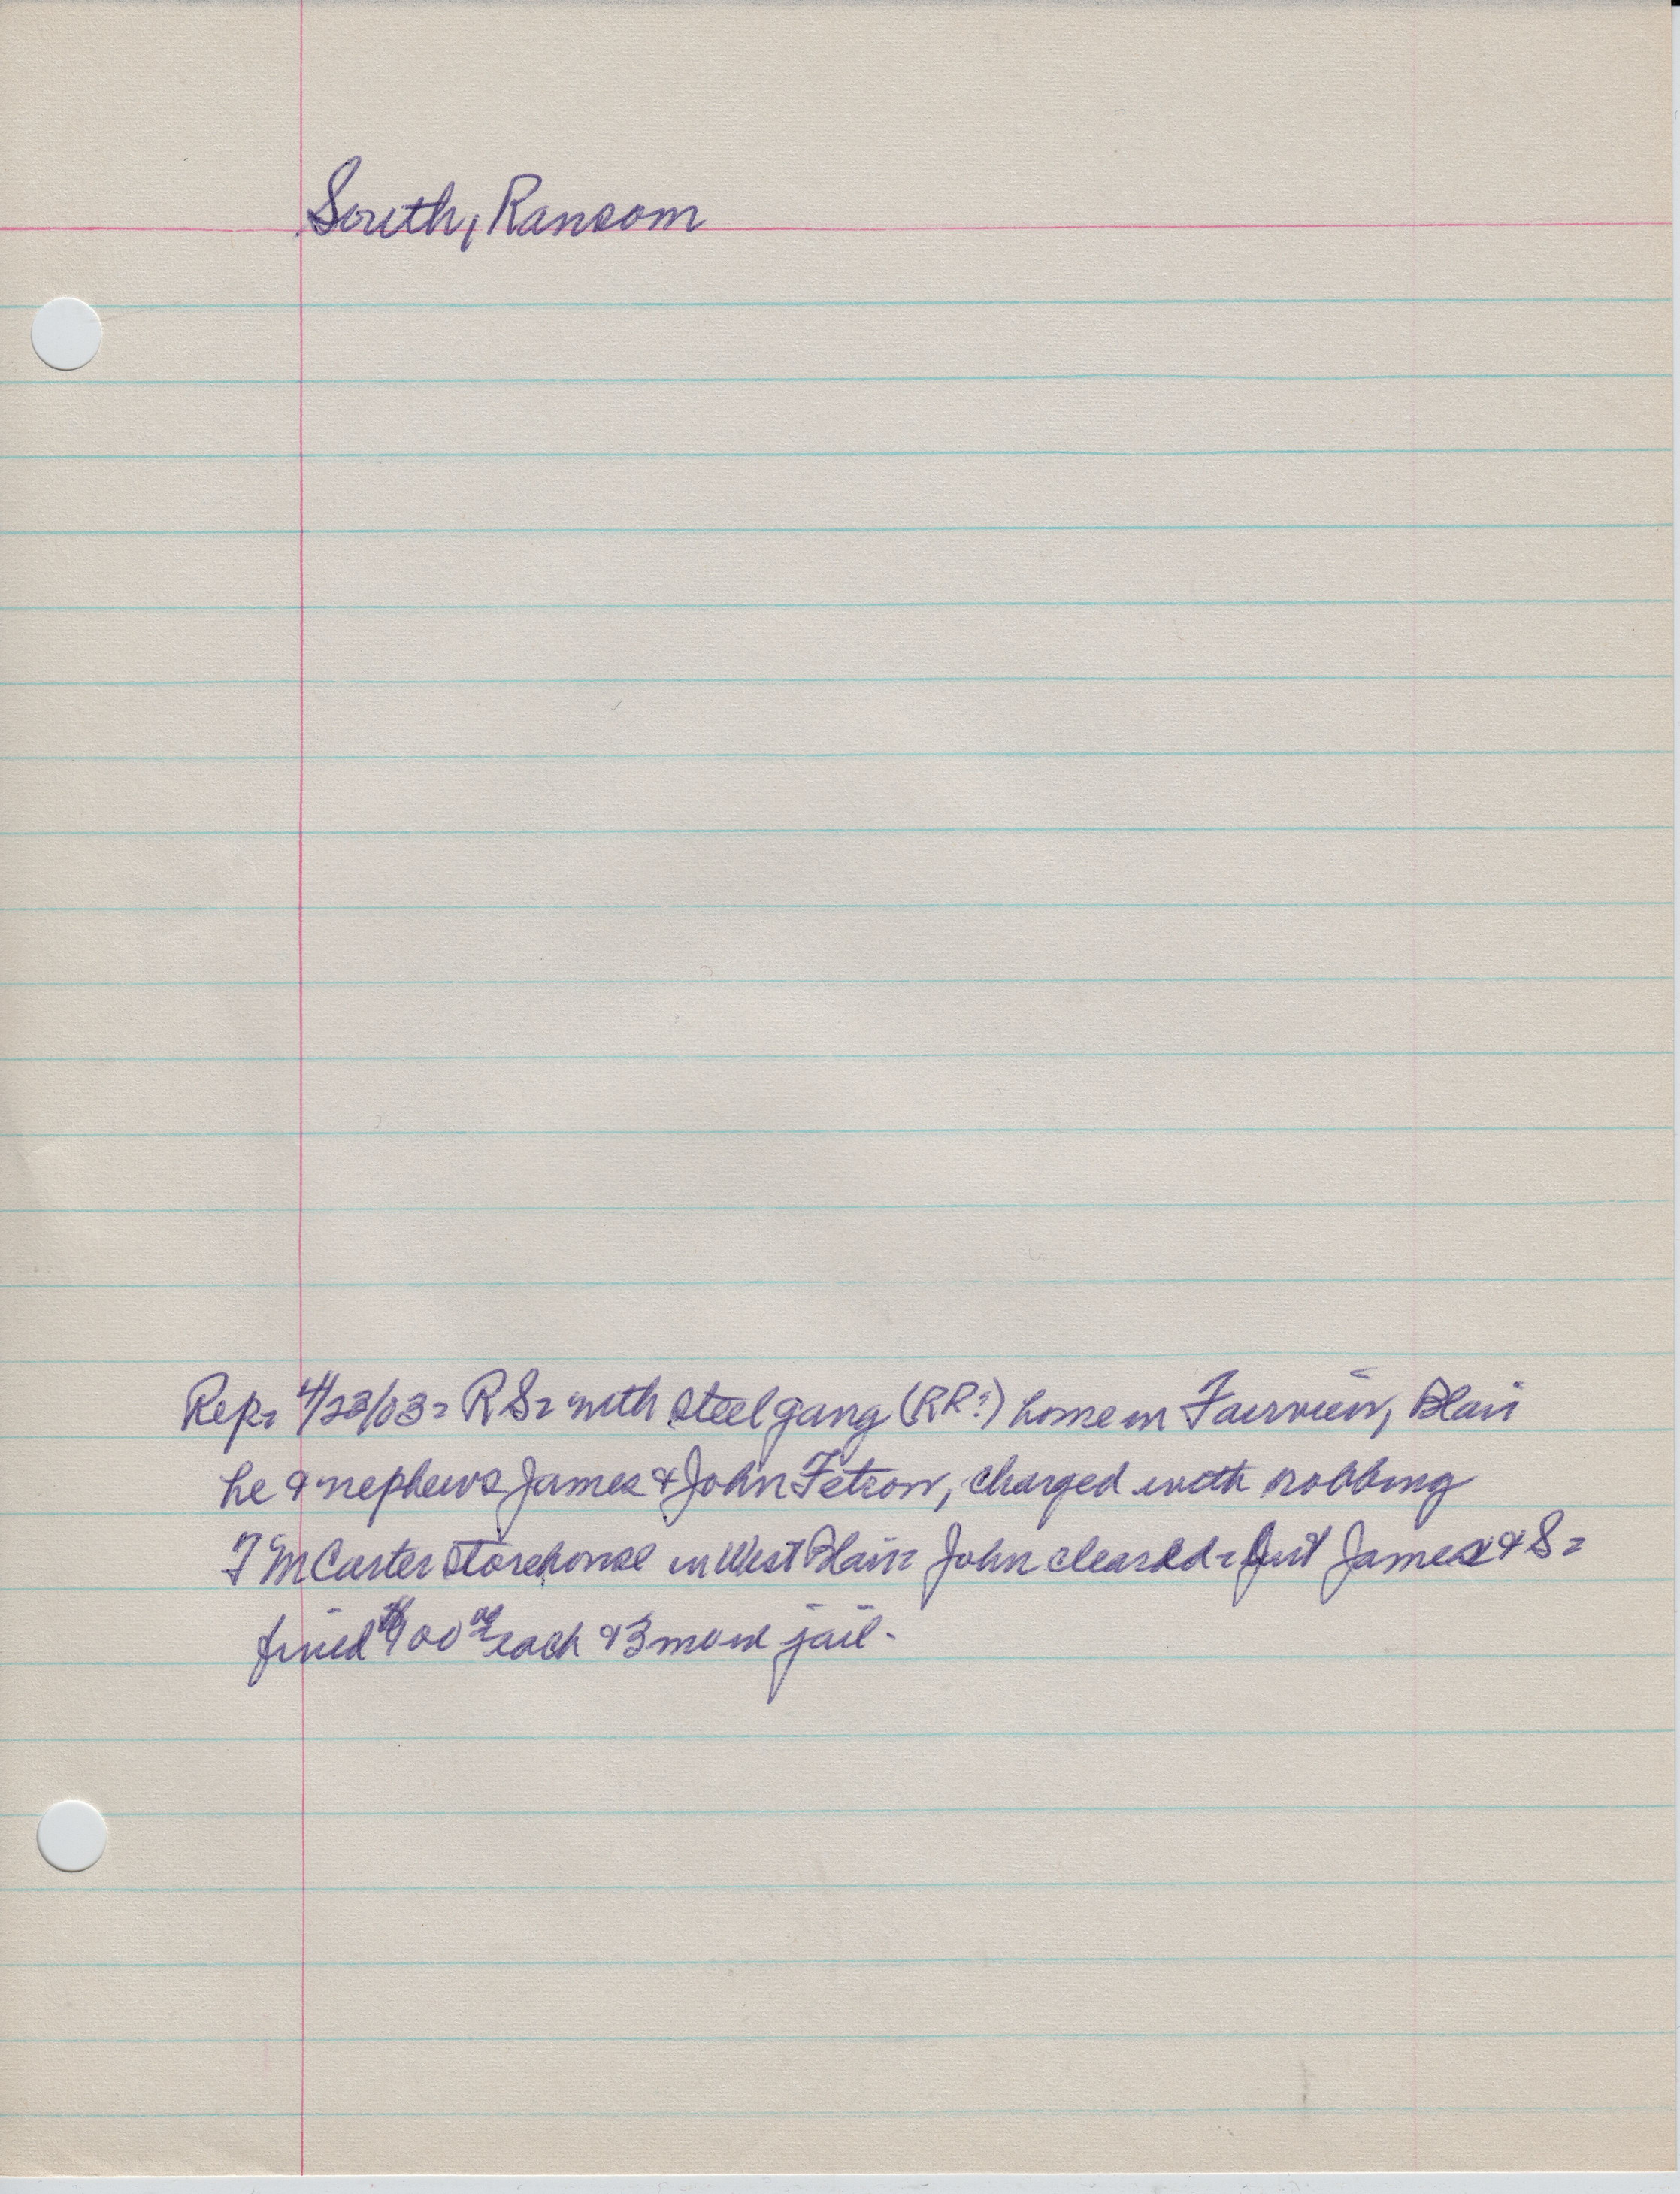 South, Ransom
Rep- 4/23/03- R S- with steel gang (RR?) home in Fairview, Blain
he & nephews James & John Fetrow, charged with robbing
I M Carter storehouse in West Blain- John cleared- but James & S-
fined $100 00 each & 3 mo in jail-